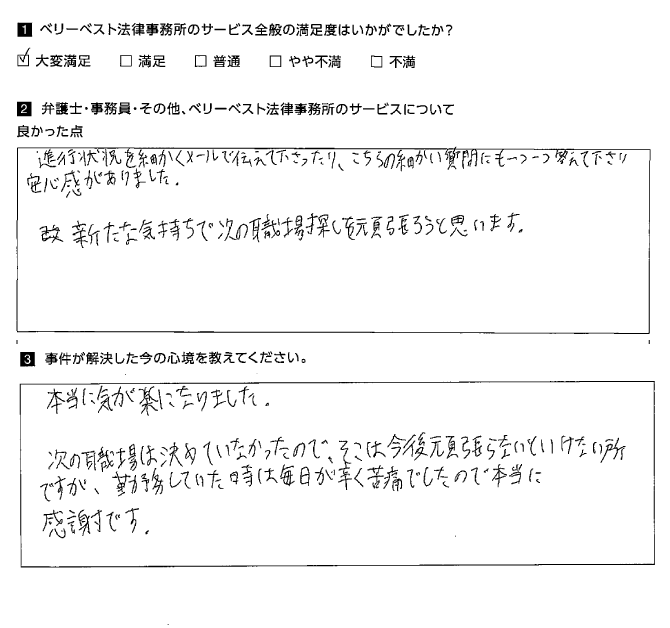 1 ベリーベスト法律事務所のサービス全般の満足度はいかがでしたか?
☑ 大変満足 □ 満足 □ 普通 □ やや不満 □ 不満
2 弁護士・事務員・その他、ベリーベスト法律事務所のサービスについて
良かった点
進行状況を細かくメールで伝えて下さったり、こちらの細かい質問にも一つ一つ答えて下さり
安心感がありました。
改 新たな気持ちで次の職場探しを頑張ろうと思います。
3 事件が解決した今の心境を教えてください。
本当に気が楽になりました。
次の職場は決めていなかったので、そこは今後頑張らないといけない所
ですが、勤務していた時は毎日が辛く苦痛でしたので本当に
感謝です。